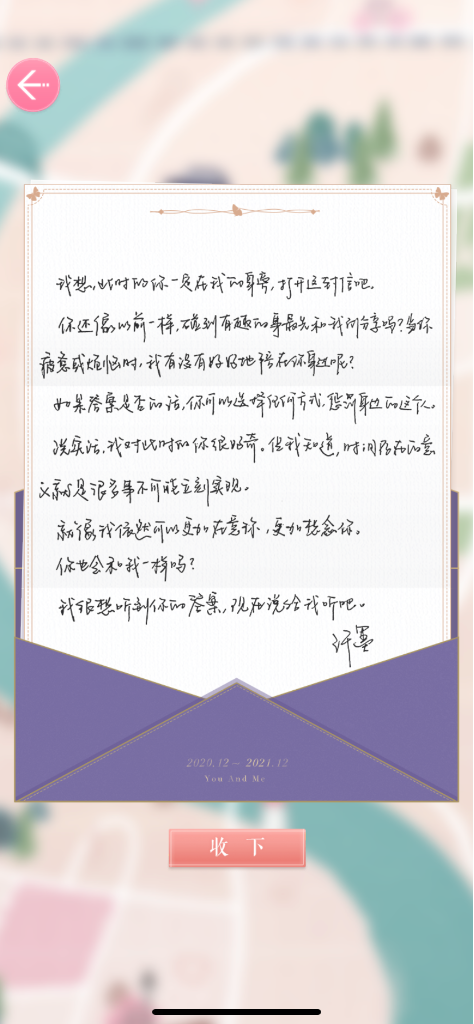 我想，此时的你一定在我的身旁，打开这封信吧。
你还像以前一样，碰到有趣的事最先和我分享吗？当你
疲惫或烦恼时，我有没有好好地陪在你身边呢？
如果答案是否的话，你可以选择任何方式，惩罚身边的这个人。
说实话，我对此时的你很好奇。但我知道，时间存在的意
义就是很多事不可能立刻实现。
就像我依然可以更加在意你，更加想念你。
你也会和我一样吗？
我很想听到你的答案，现在说给我听吧。
许墨
2020.12 — 2021.12
You And Me
收下